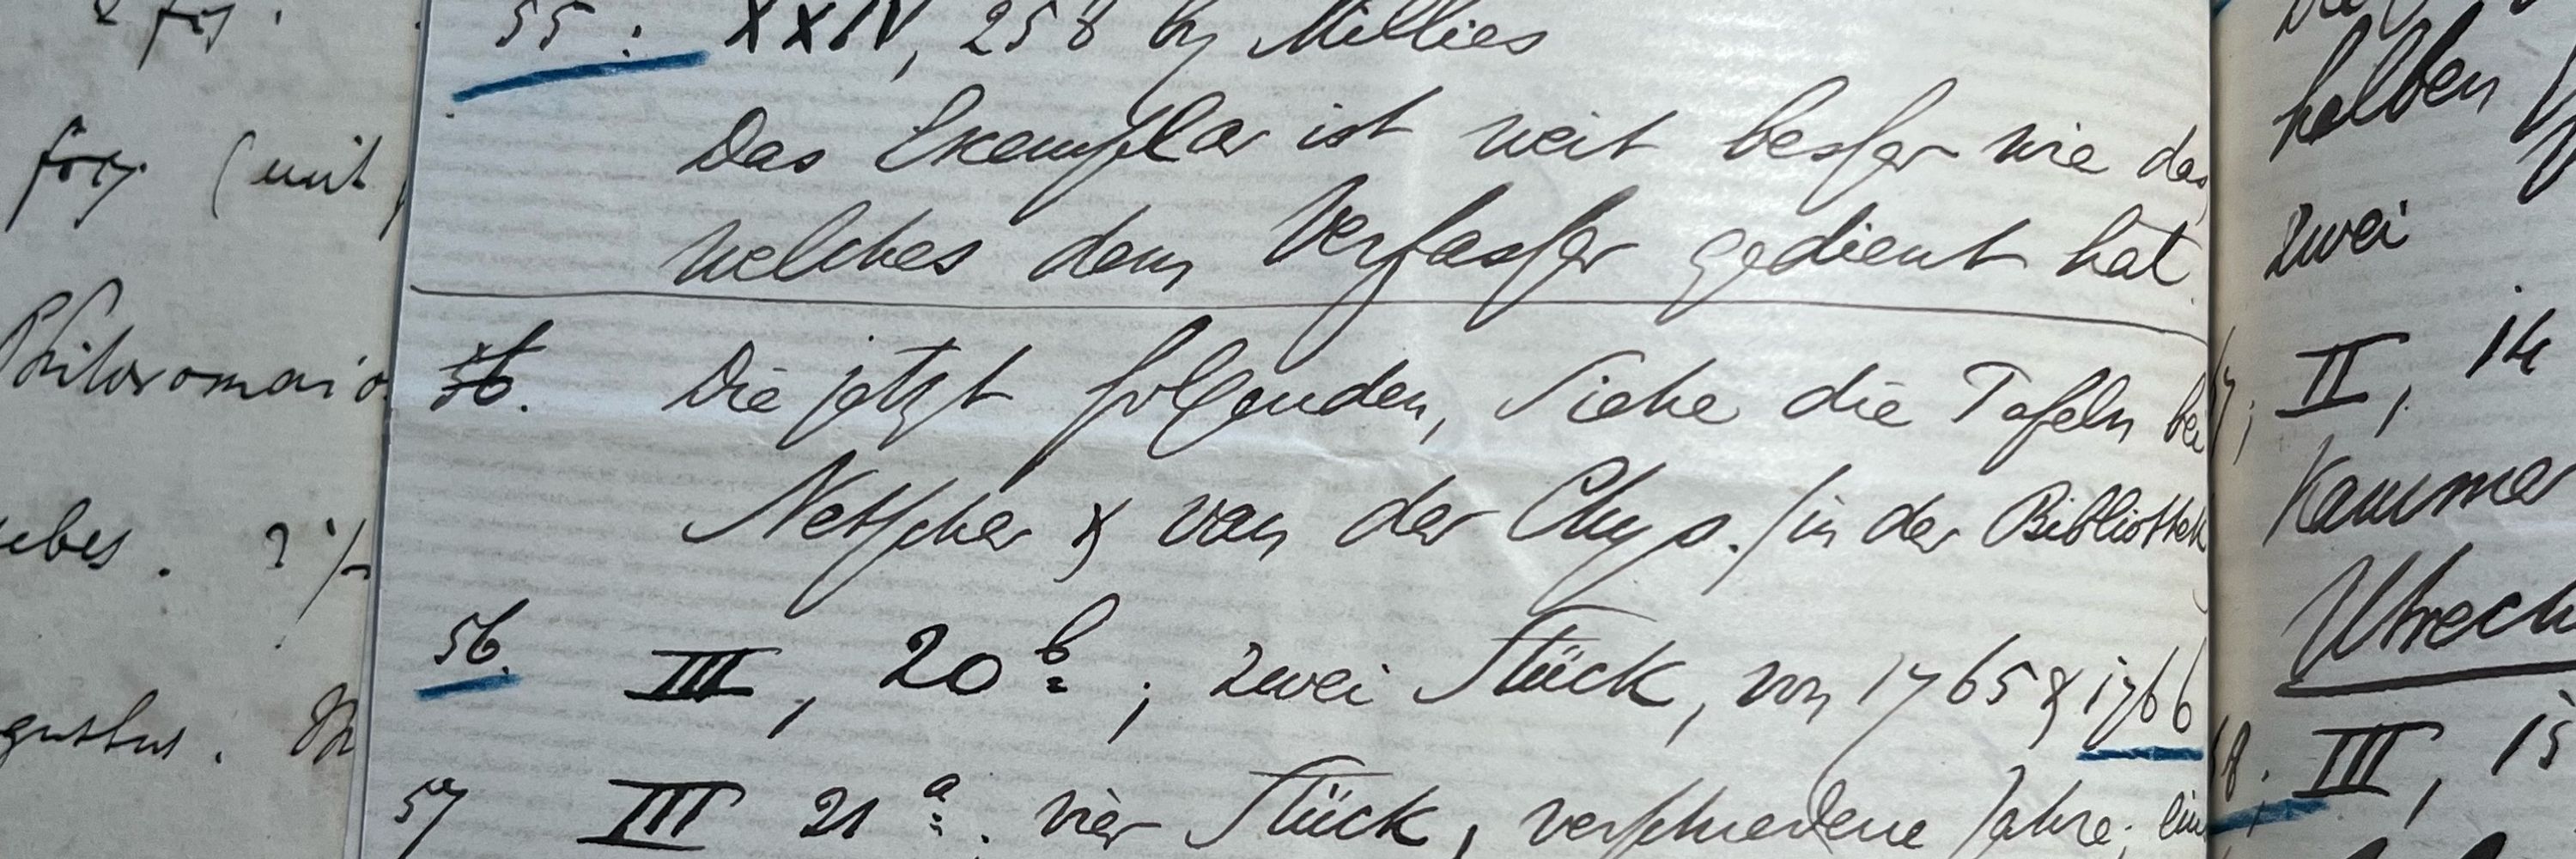 55: XXIV, 258 by Millies
Das Exemplar ist weit besser wie das
welches dem Verfasser gedient hat.
56. Die jetzt folgenden, siehe die Tafeln bei
Netscher & van der Chys. / in der Bibliothek
56. III, 20 b; zwei Stück, von 1765 & 1766
57 III 21 a; vier Stück, verschiedene Jahre; ein
(mit
Philoromaio
halben
zwei
II, 14
Kammer
Utrech
III, 15